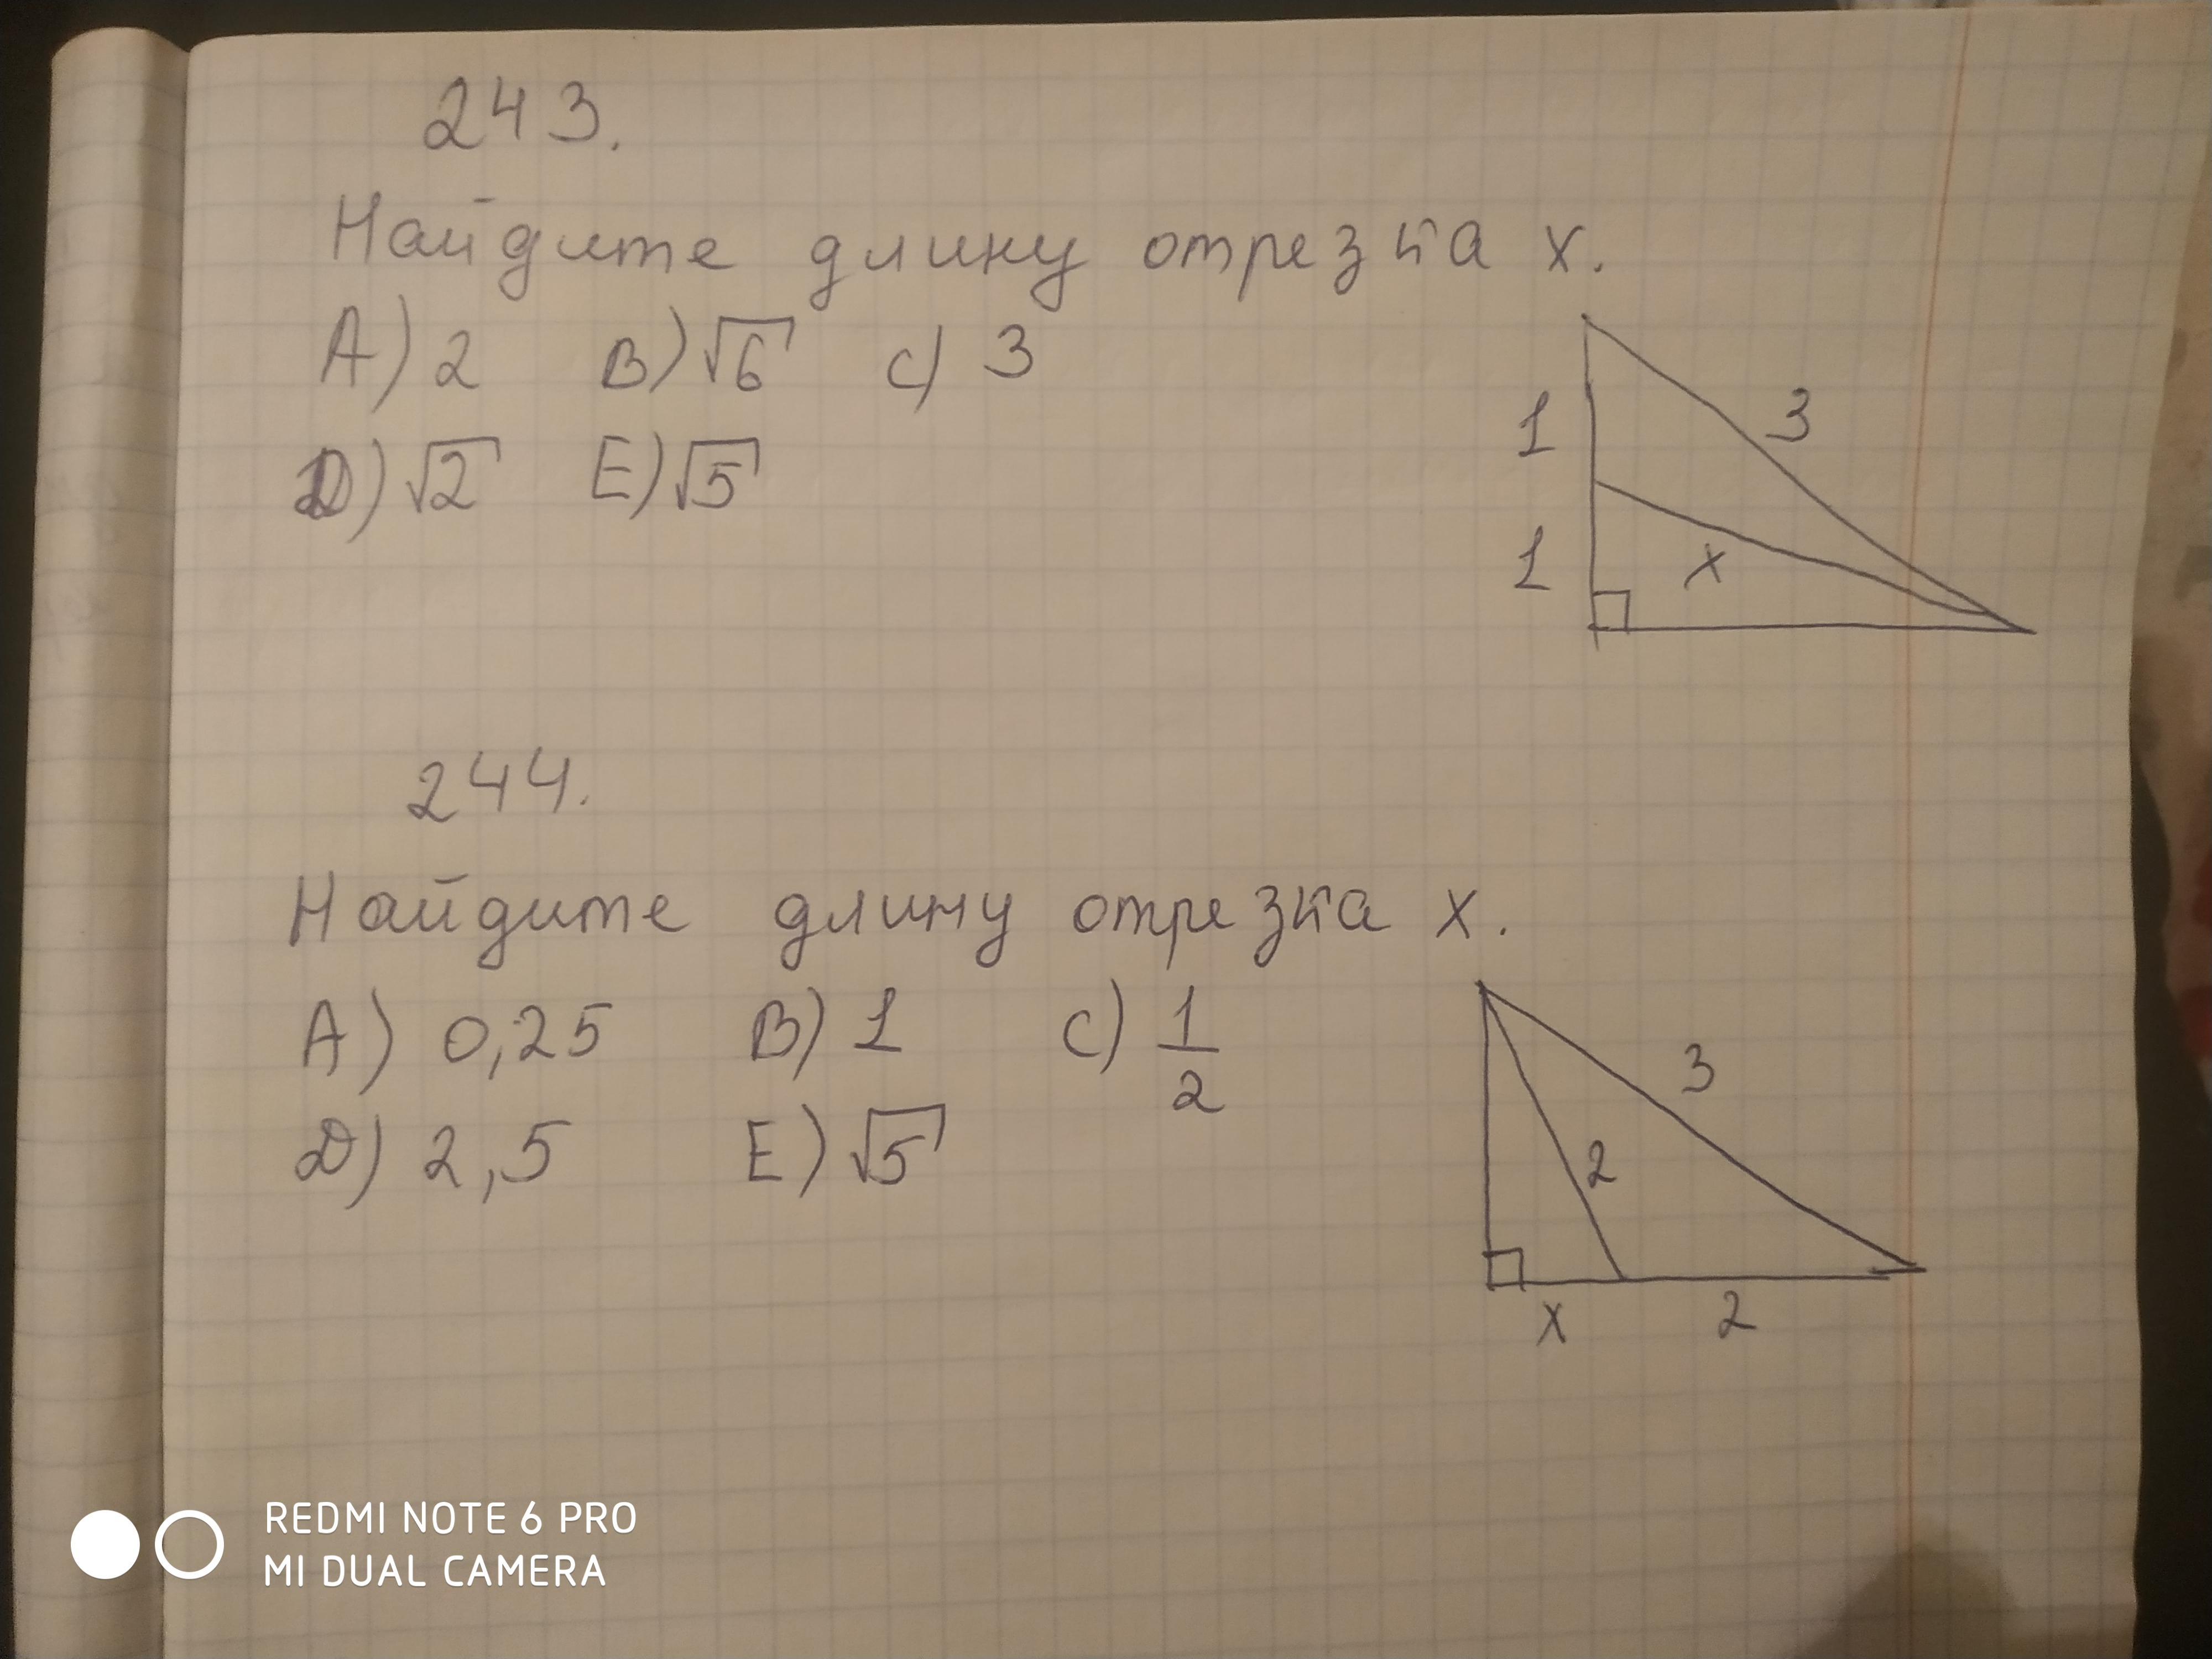 243.
Найдите длину отрезка x.
A) 2 B) √6 C) 3
D) √2 E) √5
3
1
1
x
244.
Найдите длину отрезка x.
A) 0,25 B) 1 C) 1/2
D) 2,5 E) √5
3
2
x 2
REDMI NOTE 6 PRO
MI DUAL CAMERA